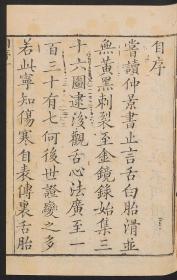 自序
嘗讀仲景書止言舌白胎滑並
無黃黑刺裂至金鏡錄始集三
十六圖逮後觀舌心法廣至一
百三十有七何後世證變之多
若此寧知傷寒自表傳裏舌胎